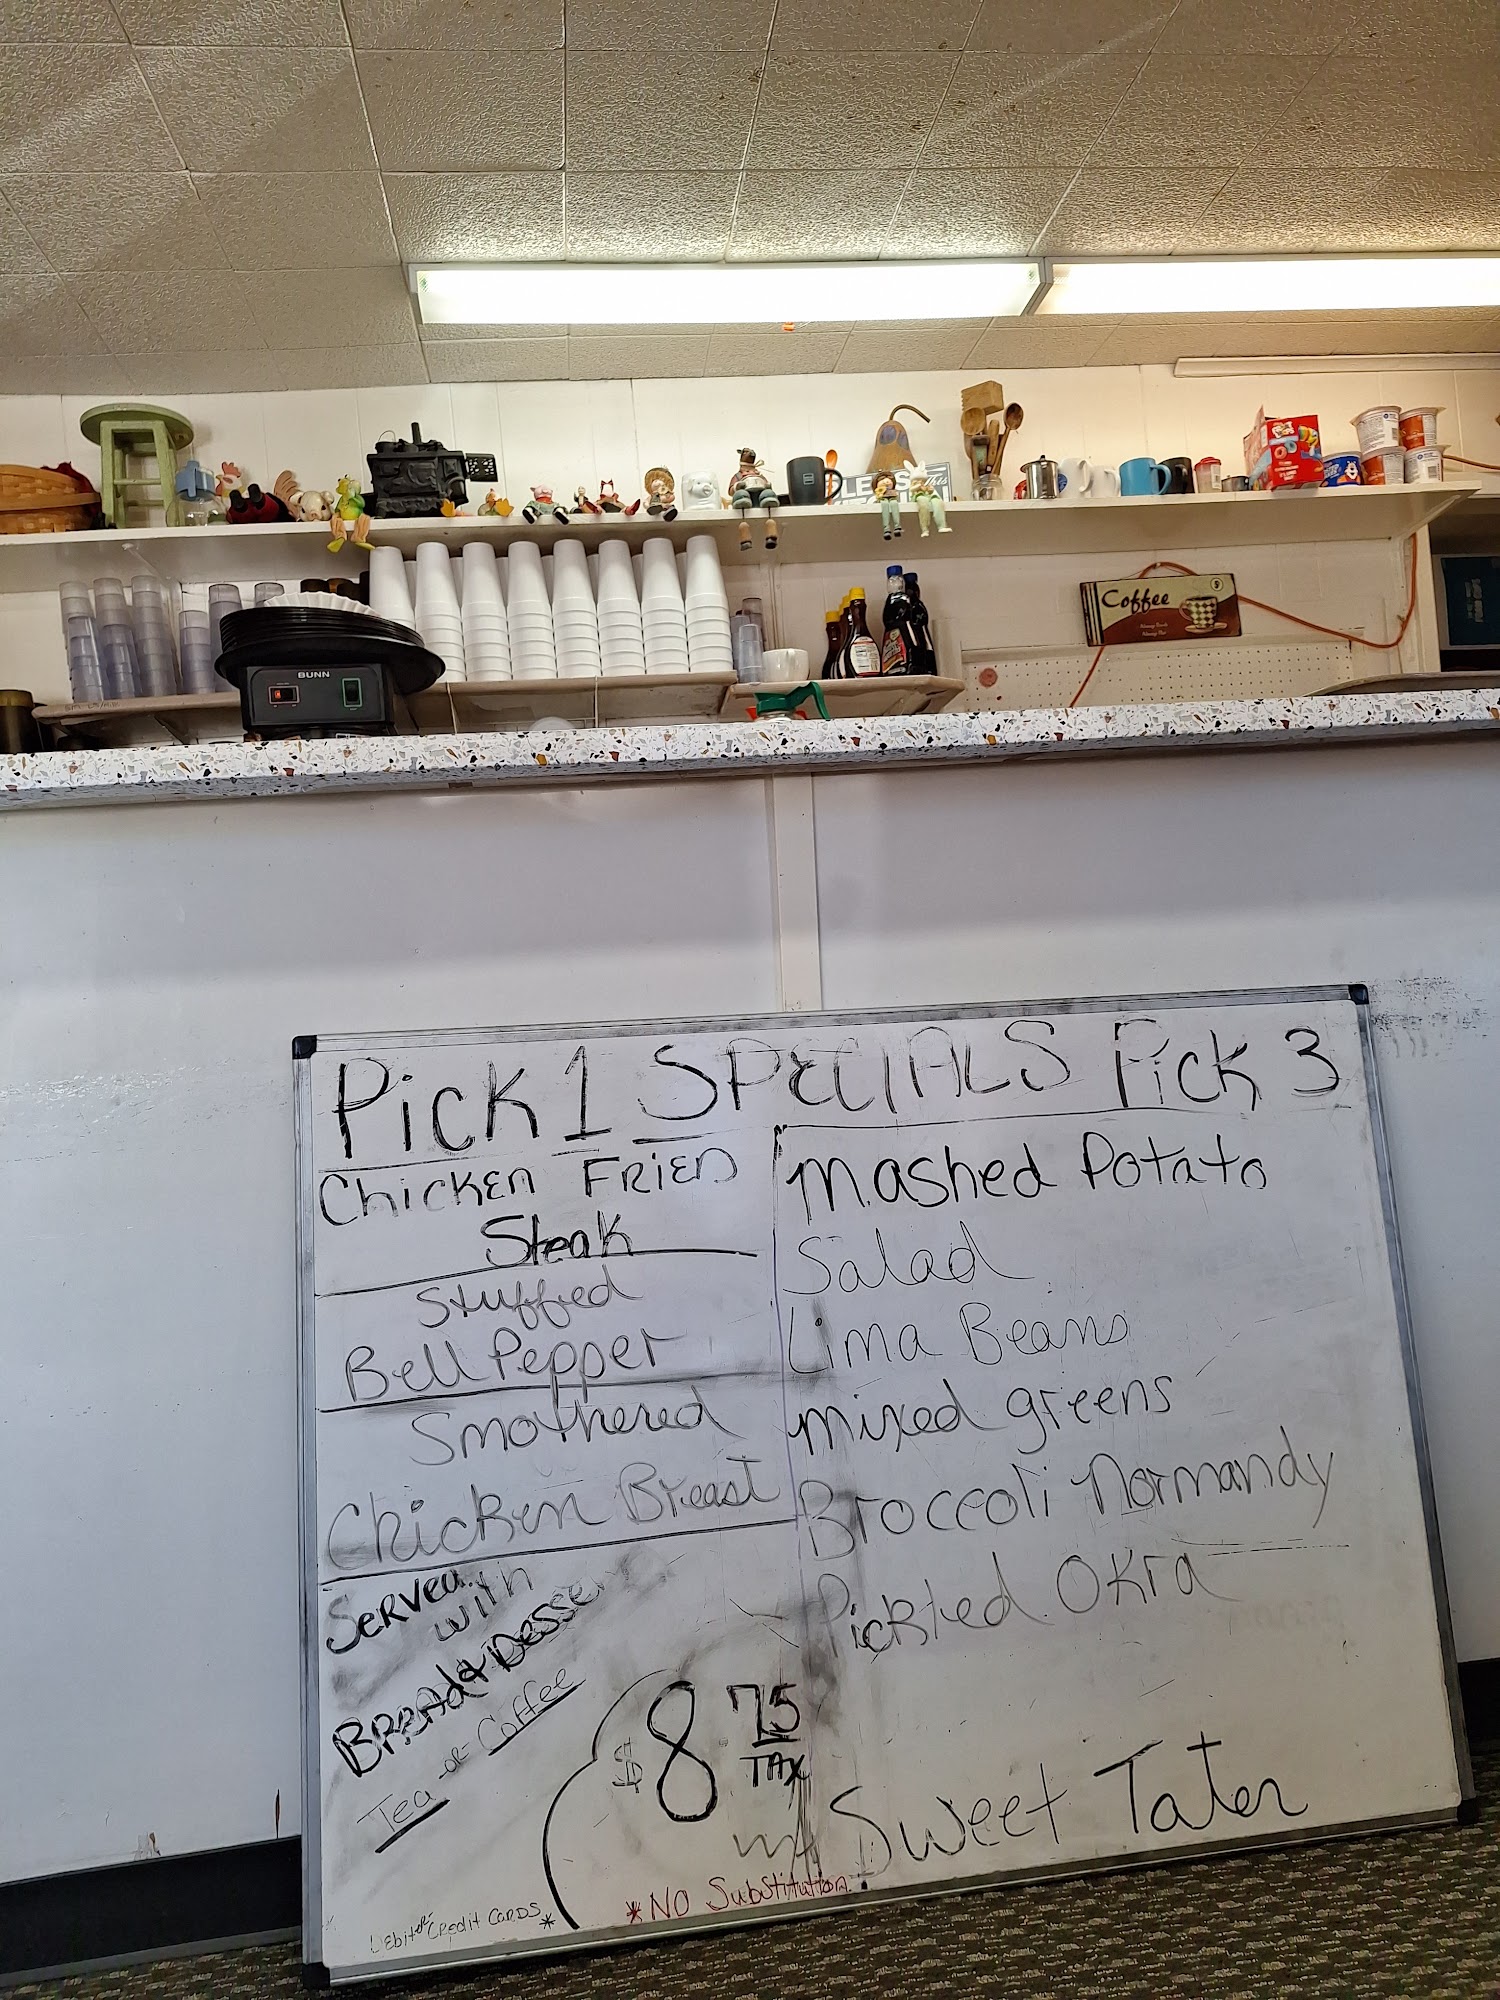 BUNN
Coffee
Pick 1 SPECIALS Pick 3
Chicken FRIED
Steak
Stuffed
Bell Pepper
Smothered
Chicken Breast
Served
with
Bread & Dessert
Tea or Coffee
Mashed Potato
Salad
Lima Beans
mixed greens
Broccoli Normandy
Pickled Okra
$8.75
TAX
Sweet Tater
*NO Substitution
Debit or Credit CARDS *